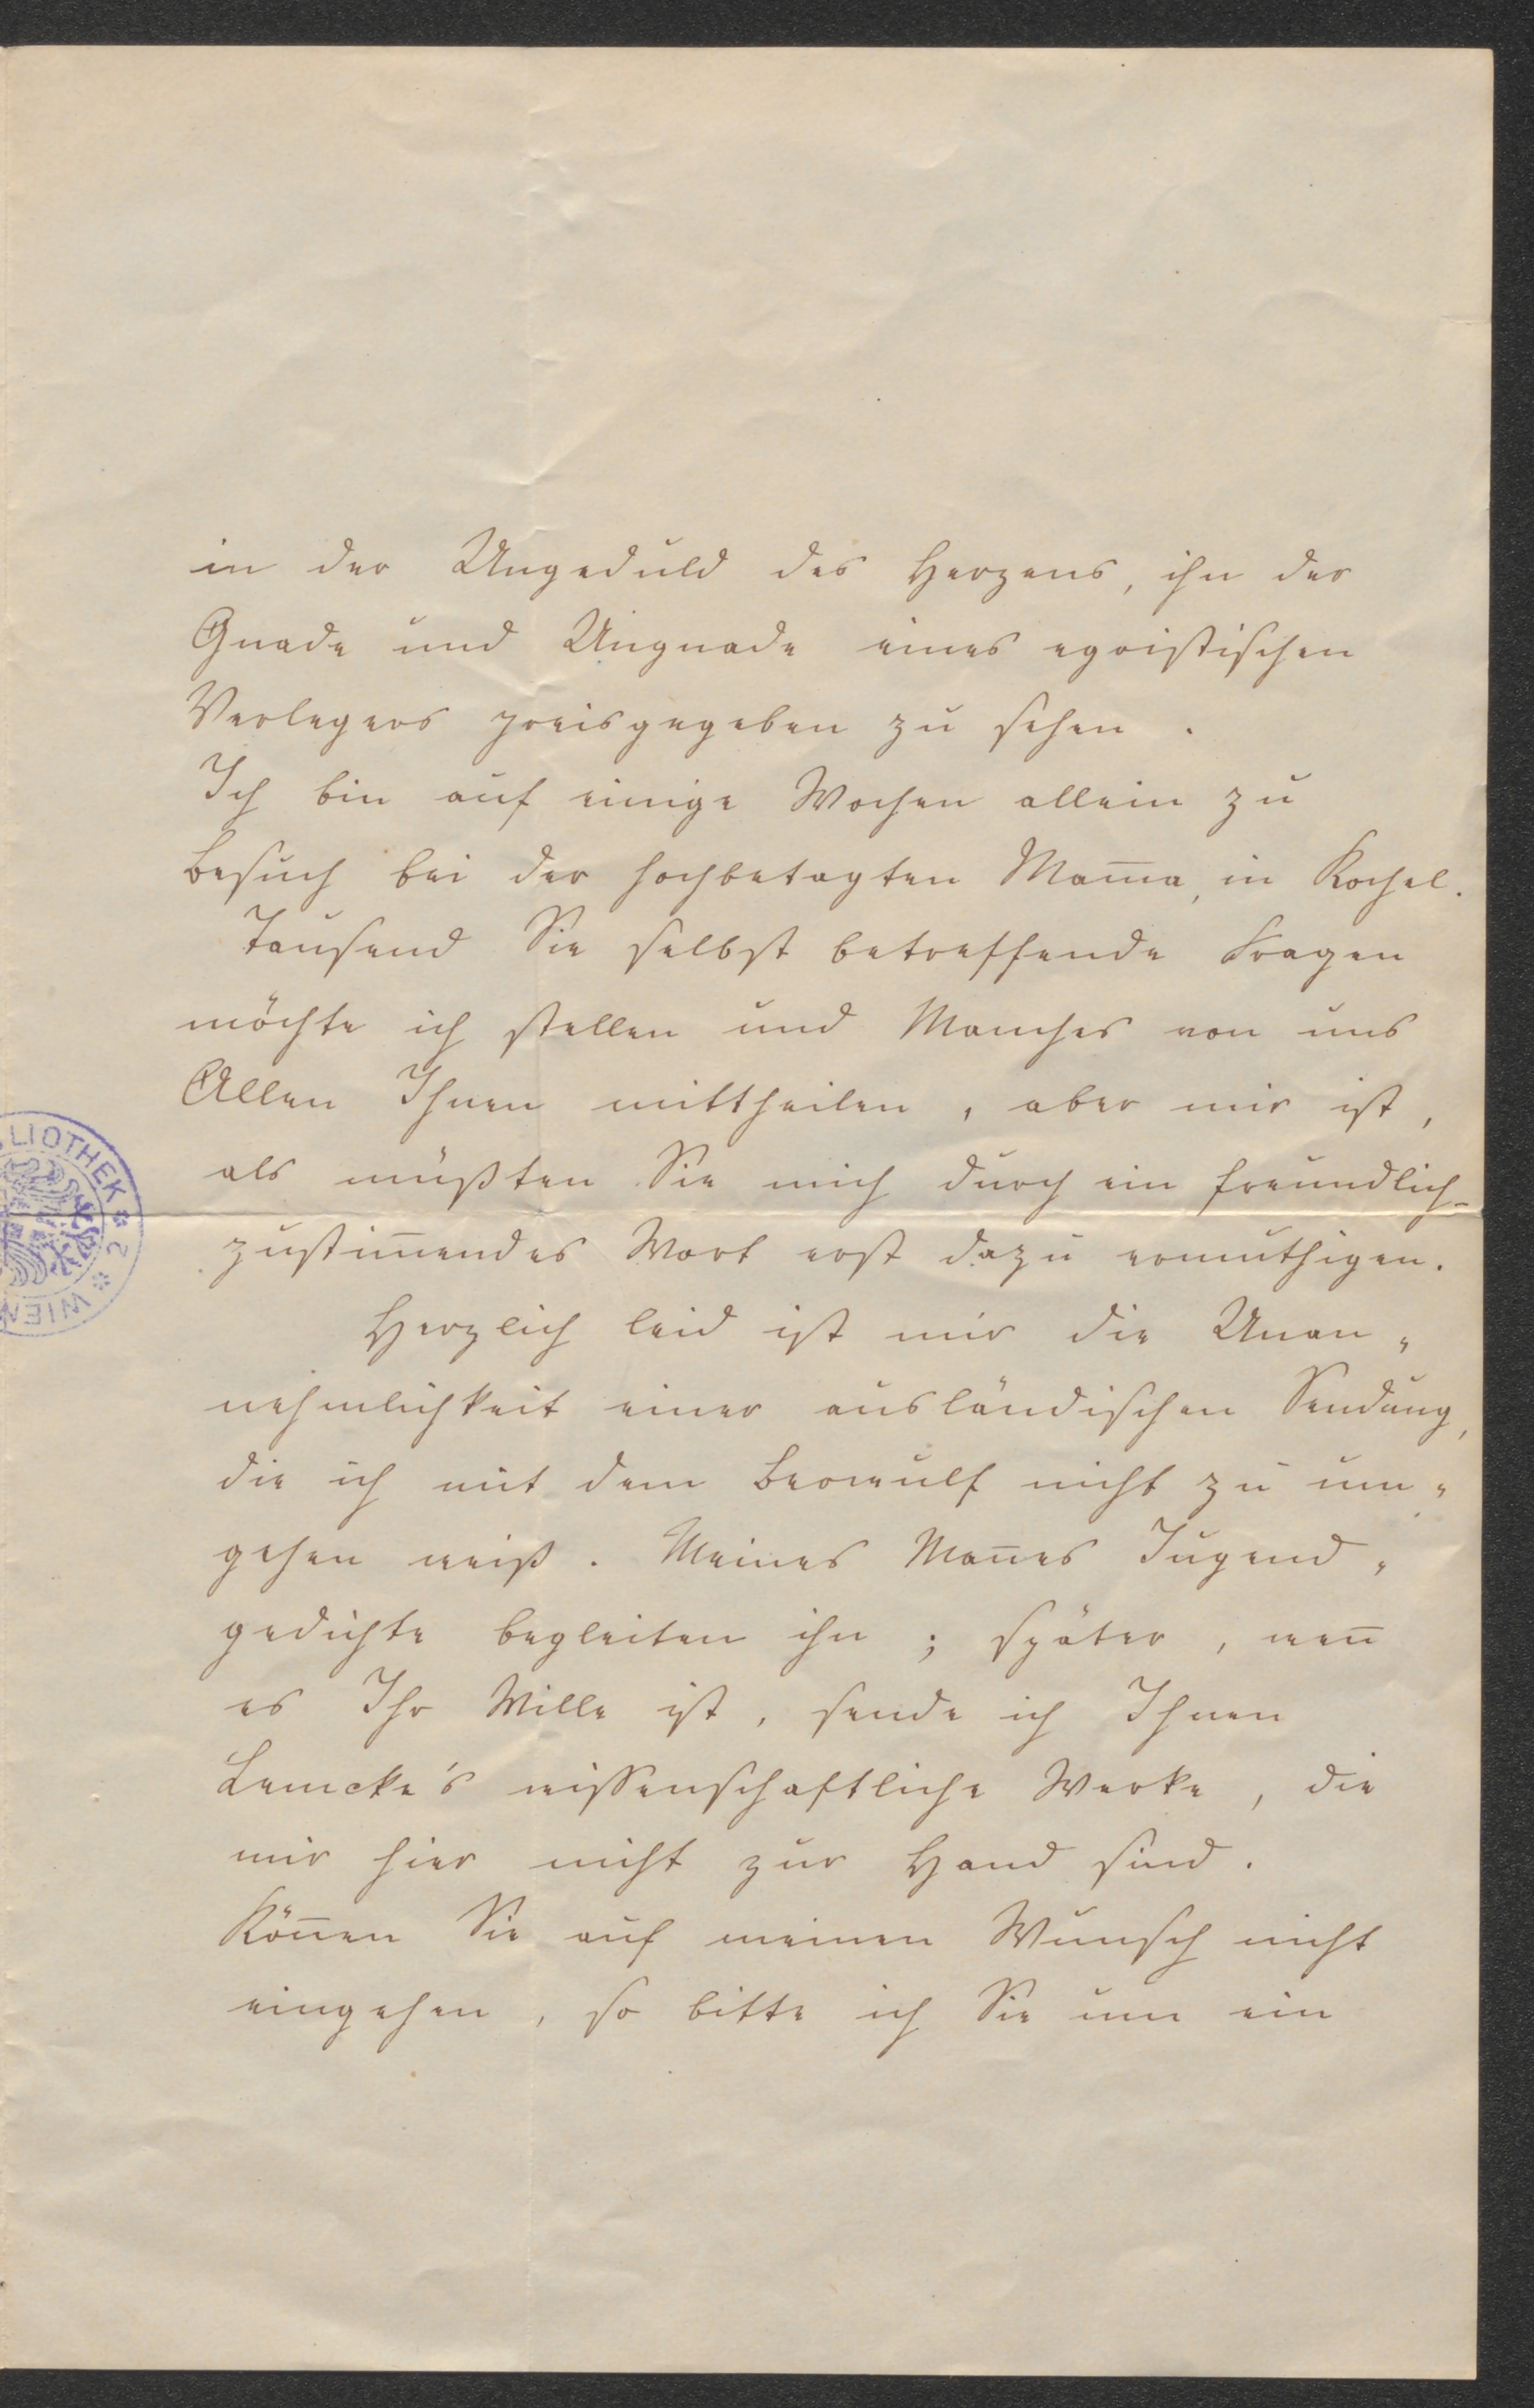 in der Ungeduld des Herzens, ihn der
Gnade und Ungnade eines egoistischen
Verlegers preisgegeben zu sehen.
Ich bin auf einige Wochen allein zu
Besuch bei der hochbetagten Mam̅a, in Kochel.
Tausend Sie selbst betreffende Fragen
möchte ich stellen und Manches von uns
Allen Ihnen mittheilen, aber mir ist,
als müßten Sie mich durch ein freundlich-
zustim̅endes Wort erst dazu ermuthigen.
Herzlich leid ist mir die Unan„
nehmlichkeit einer ausländischen Sendung,
die ich mit dem Beowulf nicht zu um„
gehen weiß. Meines Man̅es Jugend„
gedichte begleiten ihn; später, wen̅
es Ihr Wille ist, sende ich Ihnen
Lemcke's wissenschaftliche Werke, die
mir hier nicht zur Hand sind.
Kön̅en Sie auf meinen Wunsch nicht
eingehen, so bitte ich Sie um ein
LIOTHEK * 2 * WIEN